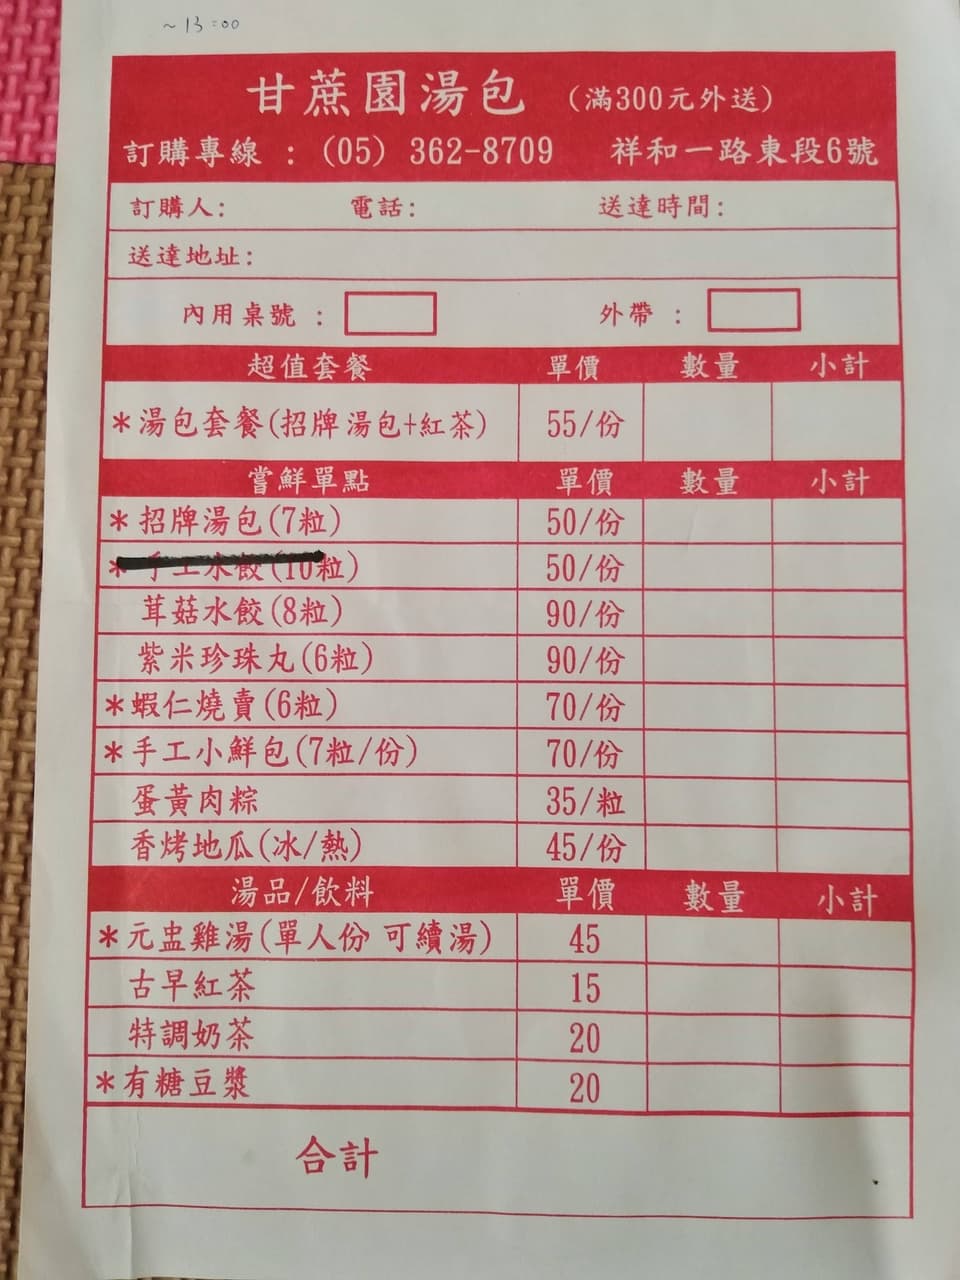 ~13:00
甘蔗園湯包 (滿300元外送)
訂購專線：(05) 362-8709 祥和一路東段6號
訂購人: 電話: 送達時間:
送達地址:
內用桌號： 外帶：
超值套餐 單價 數量 小計
*湯包套餐(招牌湯包+紅茶) 55/份
嘗鮮單點 單價 數量 小計
*招牌湯包(7粒) 50/份
*手工水餃(10粒) 50/份
茸菇水餃(8粒) 90/份
紫米珍珠丸(6粒) 90/份
*蝦仁燒賣(6粒) 70/份
*手工小鮮包(7粒/份) 70/份
蛋黃肉粽 35/粒
香烤地瓜(冰/熱) 45/份
湯品/飲料 單價 數量 小計
*元盅雞湯(單人份 可續湯) 45
古早紅茶 15
特調奶茶 20
*有糖豆漿 20
合計